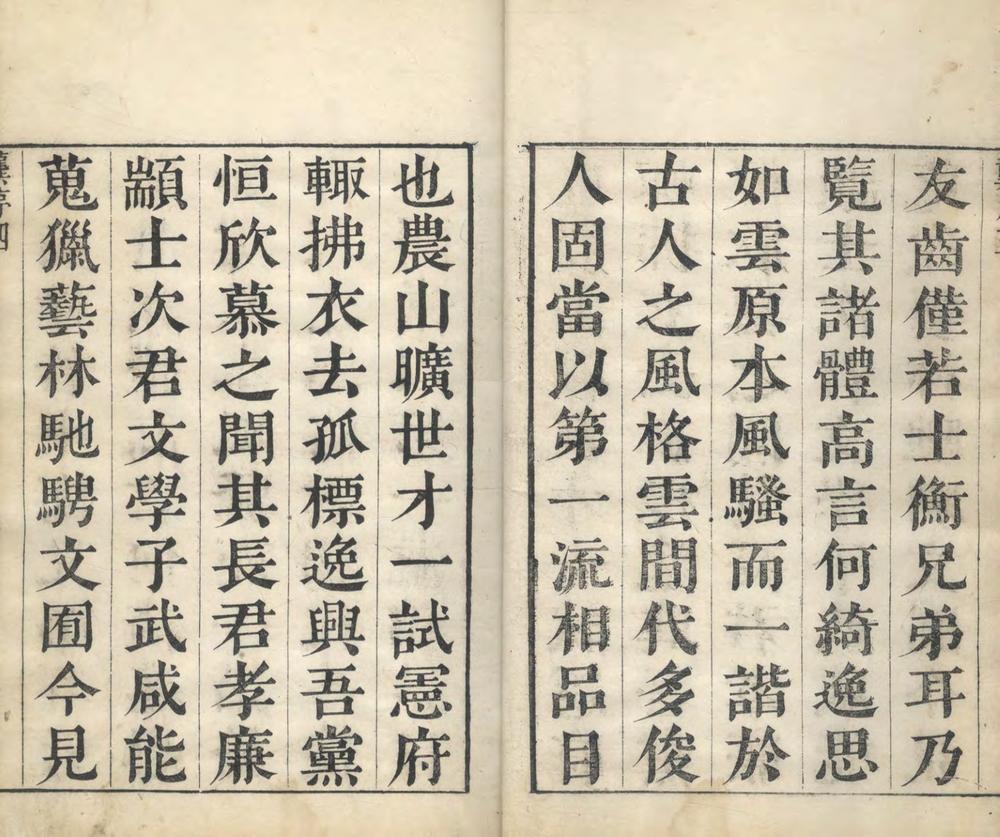 友齒僅若士衡兄弟耳乃
覽其諸體高言何綺逸思
如雲原本風騷而一諧於
古人之風格雲間代多俊
人固當以第一流相品目
也農山曠世才一試憲府
輙拂衣去孤標逸興吾黨
恒欣慕之聞其長君孝廉
顓士次君文學子武咸能
蒐獵藝林馳騁文囿今見